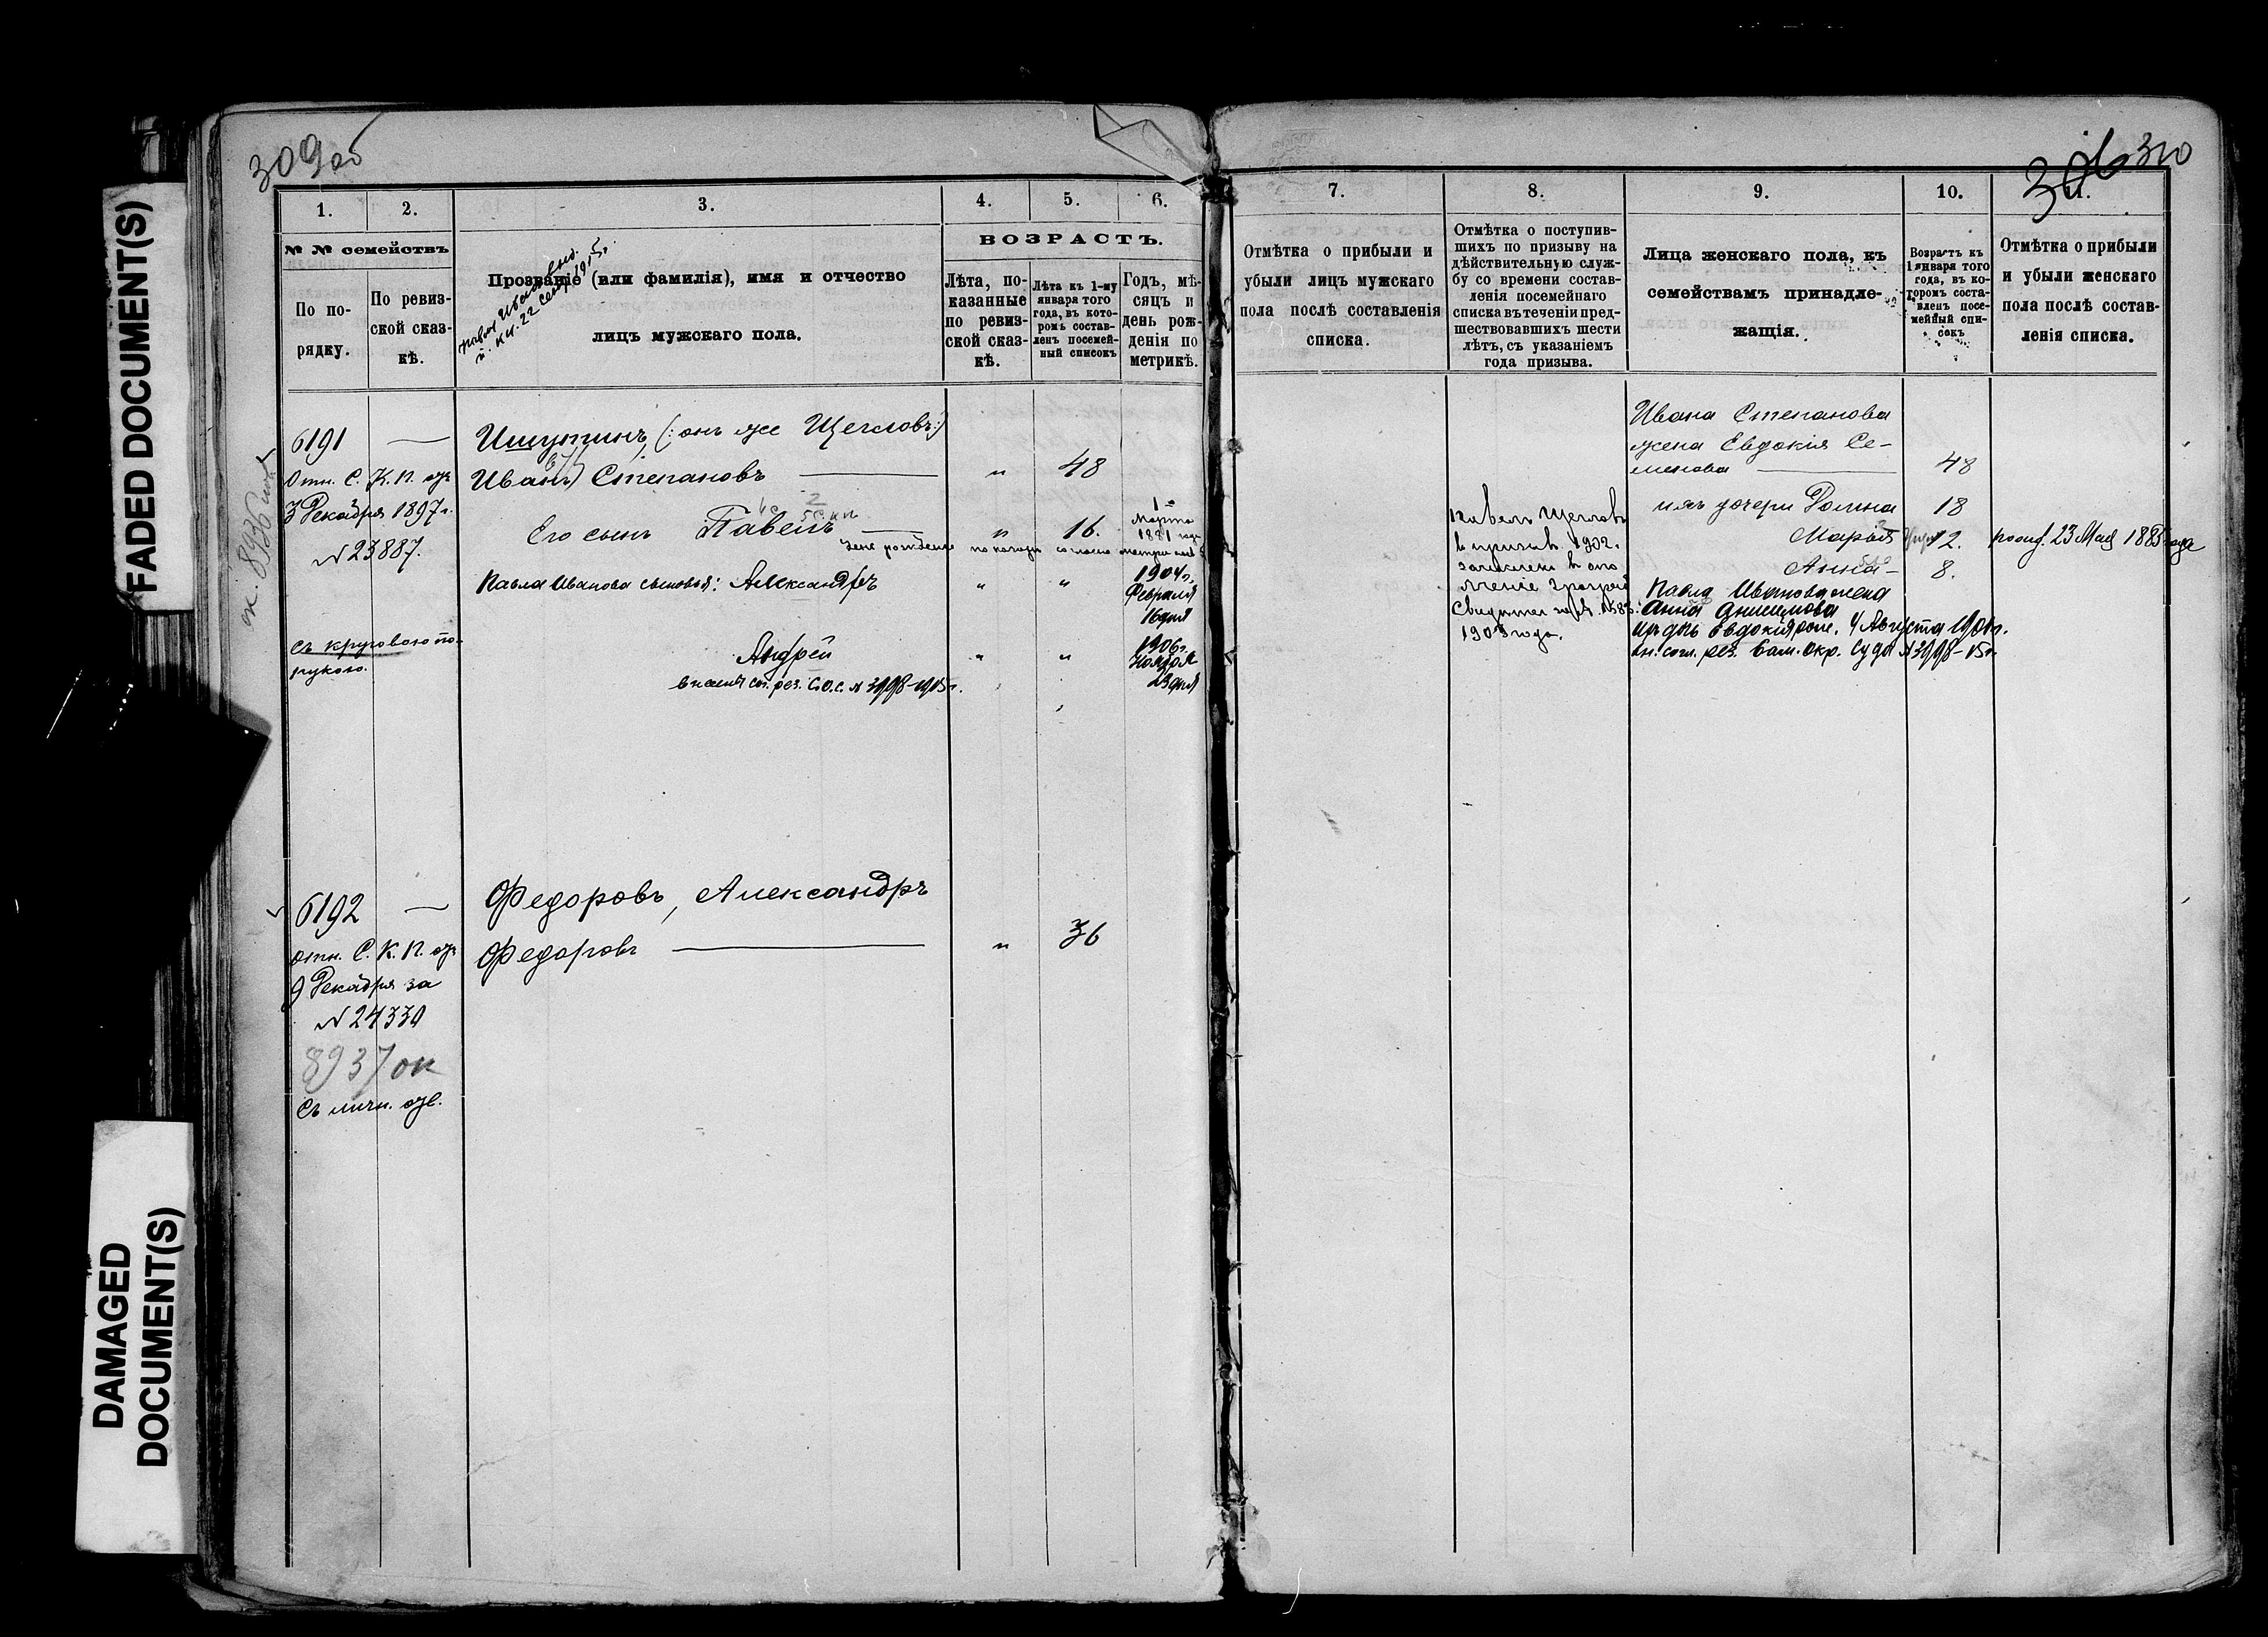 FADED DOCUMENT(S)
DAMAGED
DOCUMENT(S)
309 об
1.
2.
3.
4.
5.
6.
№ № семействъ
По по-
рядку.
По ревиз-
ской сказ-
кѣ.
Прозваніе (или фамилія), имя и отчество
лицъ мужскаго пола.
ВОЗРАСТЪ.
Лѣта, по-
казанные
по ревиз-
ской сказ-
кѣ.
Лѣта къ 1-му
января того
года, въ кото-
ромъ состав-
ленъ посемей-
ный списокъ
Годъ, мѣ-
сяцъ и
день рож-
денія по
метрикѣ.
22 Сент 1915 г.
6191 —
Отн. С. К. П. отъ
3 Декабря 1897 г.
№ 23887.
съ круговою по-
рукою.
ок. 8936
Ишутинъ, (: онъ же Щегловъ :)
Иванъ Степановъ — " 48
Его сынъ Павелъ — " 16.
1
Марта
1881 года
Павла Иванова сыновья: Александръ " "
1904 г.
Февраля
16 дня
Андрей " "
1906 г.
Ноября
23 дня
внесены сог. рез. С.О.С. № 3998-1915 г.
6192 —
отн. С. К. П. отъ
9 Декабря за
№ 24330
8937 ок
Съ личн. отв.
Федоровъ, Александръ
Федоровъ — " 36
306 310
7.
8.
9.
10.
11.
Отмѣтка о прибыли и
убыли лицъ мужскаго
пола послѣ составленія
списка.
Отмѣтка о поступив-
шихъ по призыву на
дѣйствительную служ-
бу со времени состав-
ленія посемейнаго
списка въ теченіи пред-
шествовавшихъ шести
лѣтъ, съ указаніемъ
года призыва.
Лица женскаго пола, къ
семействамъ принадле-
жащія.
Возрастъ къ
1 января того
года, въ ко-
торомъ соста-
вленъ посе-
мейный спи-
сокъ
Отмѣтка о прибыли
и убыли женскаго
пола послѣ состав-
ленія списка.
Павелъ Щегловъ
в призыв. 1902.
зачисленъ в опо
лченіе
1903 года.
Ивана Степанова
жена Евдокія Се-
менова — 48
ихъ дочери Домна 18
Марья 12. род. 23 Мая 1885 года
Анна — 8.
Павла Иванова жена
Анна Анисимова
ихъ дочь Евдокія рож. 4 Августа 1901 г.
вн. согл. рез. Сам. Окр. Суда № 3998-15 г.